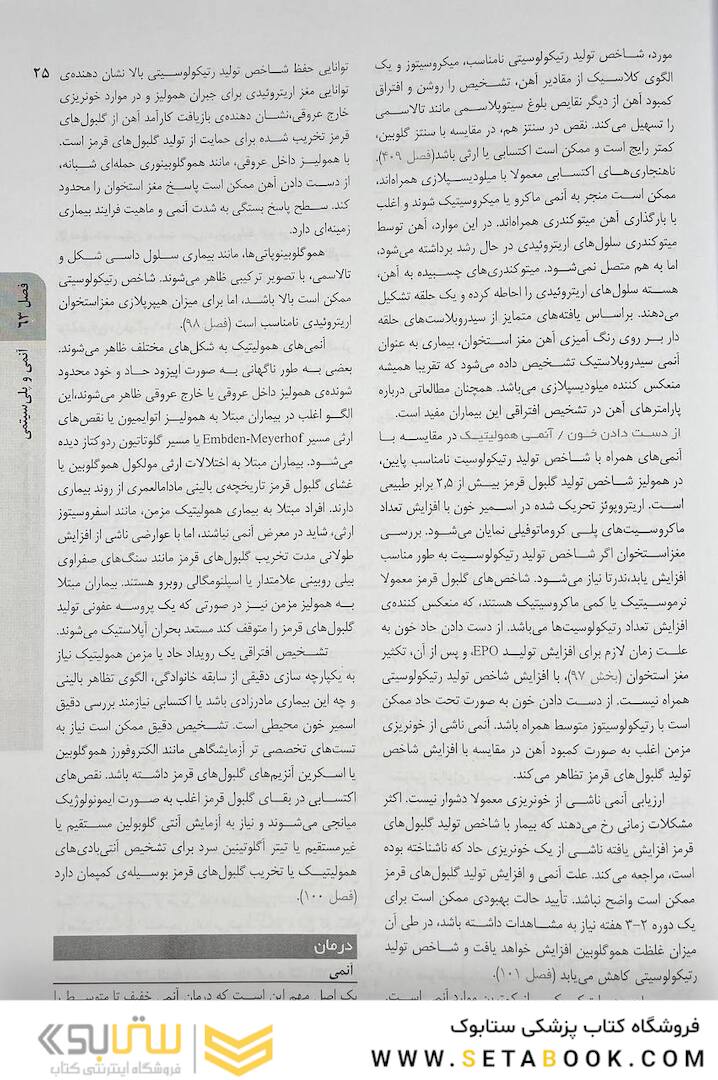 مورد، شاخص تولید رتیکولوسیتی نامناسب، میکروسیتوز و یک
الگوی کلاسیک از مقادیر آهن، تشخیص را روشن و افتراق
کمبود آهن از دیگر نقایص بلوغ سیتوپلاسمی مانند تالاسمی
را تسهیل می‌کند. نقص در سنتز هم، در مقایسه با سنتز گلوبین،
کمتر رایج است و ممکن است اکتسابی یا ارثی باشد(فصل ۴۰۹).
ناهنجاری‌های اکتسابی معمولا با میلودیسپلازی همراه‌اند،
ممکن است منجر به آنمی ماکرو یا میکروسیتیک شوند و اغلب
با بارگذاری آهن میتوکندری همراه‌اند. در این موارد، آهن توسط
میتوکندری سلول‌های اریتروئیدی در حال رشد برداشته می‌شود،
اما به هم متصل نمی‌شود. میتوکندری‌های چسبیده به آهن،
هسته سلول‌های اریتروئیدی را احاطه کرده و یک حلقه تشکیل
می‌دهند. براساس یافته‌های متمایز از سیدروبلاست‌های حلقه
دار بر روی رنگ آمیزی آهن مغز استخوان، بیماری به عنوان
آنمی سیدروبلاستیک تشخیص داده می‌شود که تقریبا همیشه
منعکس کننده میلودیسپلازی می‌باشد. همچنان مطالعاتی درباره
پارامترهای آهن در تشخیص افتراقی این بیماران مفید است.
از دست دادن خون / آنمی همولیتیک در مقایسه با
آنمی‌های همراه با شاخص تولید رتیکولوسیت نامناسب پایین،
در همولیز شاخص تولید گلبول قرمز بیش از ۲٫۵ برابر طبیعی
است. اریتروپوئز تحریک شده در اسمیر خون با افزایش تعداد
ماکروسیت‌های پلی کروماتوفیلی نمایان می‌شود. بررسی
مغزاستخوان اگر شاخص تولید رتیکولوسیت به طور مناسب
افزایش یابد،ندرتا نیاز می‌شود. شاخص‌های گلبول قرمز معمولا
نرموسیتیک یا کمی ماکروسیتیک هستند، که منعکس کننده‌ی
افزایش تعداد رتیکولوسیت‌ها می‌باشد. از دست دادن حاد خون به
علت زمان لازم برای افزایش تولید EPO، و پس از آن، تکثیر
مغز استخوان (بخش ۹۷)، با افزایش شاخص تولید رتیکولوسیتی
همراه نیست. از دست دادن خون به صورت تحت حاد ممکن
است با رتیکولوسیتوز متوسط همراه باشد. آنمی ناشی از خونریزی
مزمن اغلب به صورت کمبود آهن در مقایسه با افزایش شاخص
تولید گلبول‌های قرمز تظاهر می‌کند.
ارزیابی آنمی ناشی از خونریزی معمولا دشوار نیست. اکثر
مشکلات زمانی رخ می‌دهند که بیمار با شاخص تولید گلبول‌های
قرمز افزایش یافته ناشی از یک خونریزی حاد که ناشناخته بوده
است، مراجعه می‌کند. علت آنمی و افزایش تولید گلبول‌های قرمز
ممکن است واضح نباشد. تأیید حالت بهبودی ممکن است برای
یک دوره ۲-۳ هفته نیاز به مشاهدات داشته باشد، در طی آن
میزان غلظت هموگلوبین افزایش خواهد یافت و شاخص تولید
رتیکولوسیتی کاهش می‌یابد (فصل ۱۰۱).
توانایی حفظ شاخص تولید رتیکولوسیتی بالا نشان دهنده‌ی
توانایی مغز اریتروئیدی برای جبران همولیز و در موارد خونریزی
خارج عروقی،نشان دهنده‌ی بازیافت کارآمد آهن از گلبول‌های
قرمز تخریب شده برای حمایت از تولید گلبول‌های قرمز است.
با همولیز داخل عروقی، مانند هموگلوبینوری حمله‌ای شبانه،
از دست دادن آهن ممکن است پاسخ مغز استخوان را محدود
کند. سطح پاسخ بستگی به شدت آنمی و ماهیت فرایند بیماری
زمینه‌ای دارد.
هموگلوبینوپاتی‌ها، مانند بیماری سلول داسی شکل و
تالاسمی، با تصویر ترکیبی ظاهر می‌شوند. شاخص رتیکولوسیتی
ممکن است بالا باشد، اما برای میزان هیپرپلازی مغزاستخوان
اریتروئیدی نامناسب است (فصل ۹۸).
آنمی‌های همولیتیک به شکل‌های مختلف ظاهر می‌شوند.
بعضی به طور ناگهانی به صورت اپیزود حاد و خود محدود
شونده‌ی همولیز داخل عروقی یا خارج عروقی ظاهر می‌شوند،این
الگو اغلب در بیماران مبتلا به همولیز اتوایمیون یا نقص‌های
ارثی مسیر Embden-Meyerhof یا مسیر گلوتاتیون ردوکتاز دیده
می‌شود. بیماران مبتلا به اختلالات ارثی مولکول هموگلوبین یا
غشای گلبول قرمز تاریخچه‌ی بالینی مادام‌العمری از روند بیماری
دارند. افراد مبتلا به بیماری همولیتیک مزمن، مانند اسفروسیتوز
ارثی، شاید در معرض آنمی نباشند، اما با عوارضی ناشی از افزایش
طولانی مدت تخریب گلبول‌های قرمز مانند سنگ‌های صفراوی
بیلی روبینی علامتدار یا اسپلنومگالی روبرو هستند. بیماران مبتلا
به همولیز مزمن نیز در صورتی که یک پروسه عفونی تولید
گلبول‌های قرمز را متوقف کند مستعد بحران آپلاستیک می‌شوند.
تشخیص افتراقی یک رویداد حاد یا مزمن همولیتیک نیاز
به یکپارچه سازی دقیقی از سابقه خانوادگی، الگوی تظاهر بالینی
و چه این بیماری مادرزادی باشد یا اکتسابی نیازمند بررسی دقیق
اسمیر خون محیطی است. تشخیص دقیق ممکن است نیاز به
تست‌های تخصصی تر آزمایشگاهی مانند الکتروفورز هموگلوبین
یا اسکرین آنزیم‌های گلبول‌های قرمز داشته باشد. نقص‌های
اکتسابی در بقای گلبول قرمز اغلب به صورت ایمونولوژیک
میانجی می‌شوند و نیاز به آزمایش آنتی گلوبولین مستقیم یا
غیرمستقیم یا تیتر آگلوتینین سرد برای تشخیص آنتی‌بادی‌های
همولیتیک یا تخریب گلبول‌های قرمز بوسیله‌ی کمپمان دارد
(فصل ۱۰۰).
درمان
آنمی
یک اصل مهم این است که درمان آنمی خفیف تا متوسط را
۲۵
فصل ۶۳
آنمی و پلی‌سیتمی
فروشگاه کتاب پزشکی ستابوک
WWW.SETABOOK.COM
ستابوک
فروشگاه اینترنتی کتاب